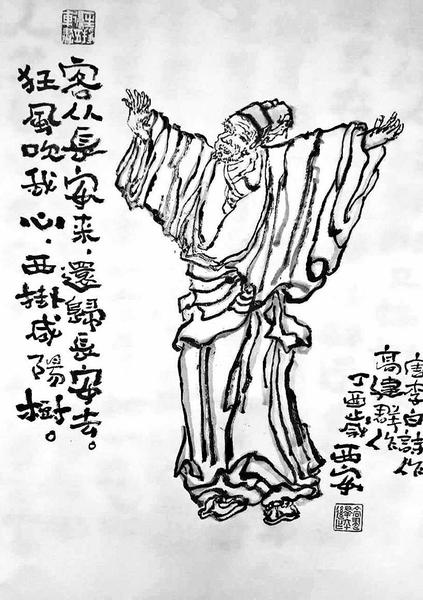 客从長安来，還歸長安去。
狂風吹我心，西掛咸陽樹。
唐李白詩
高建群
丁酉歲 西安